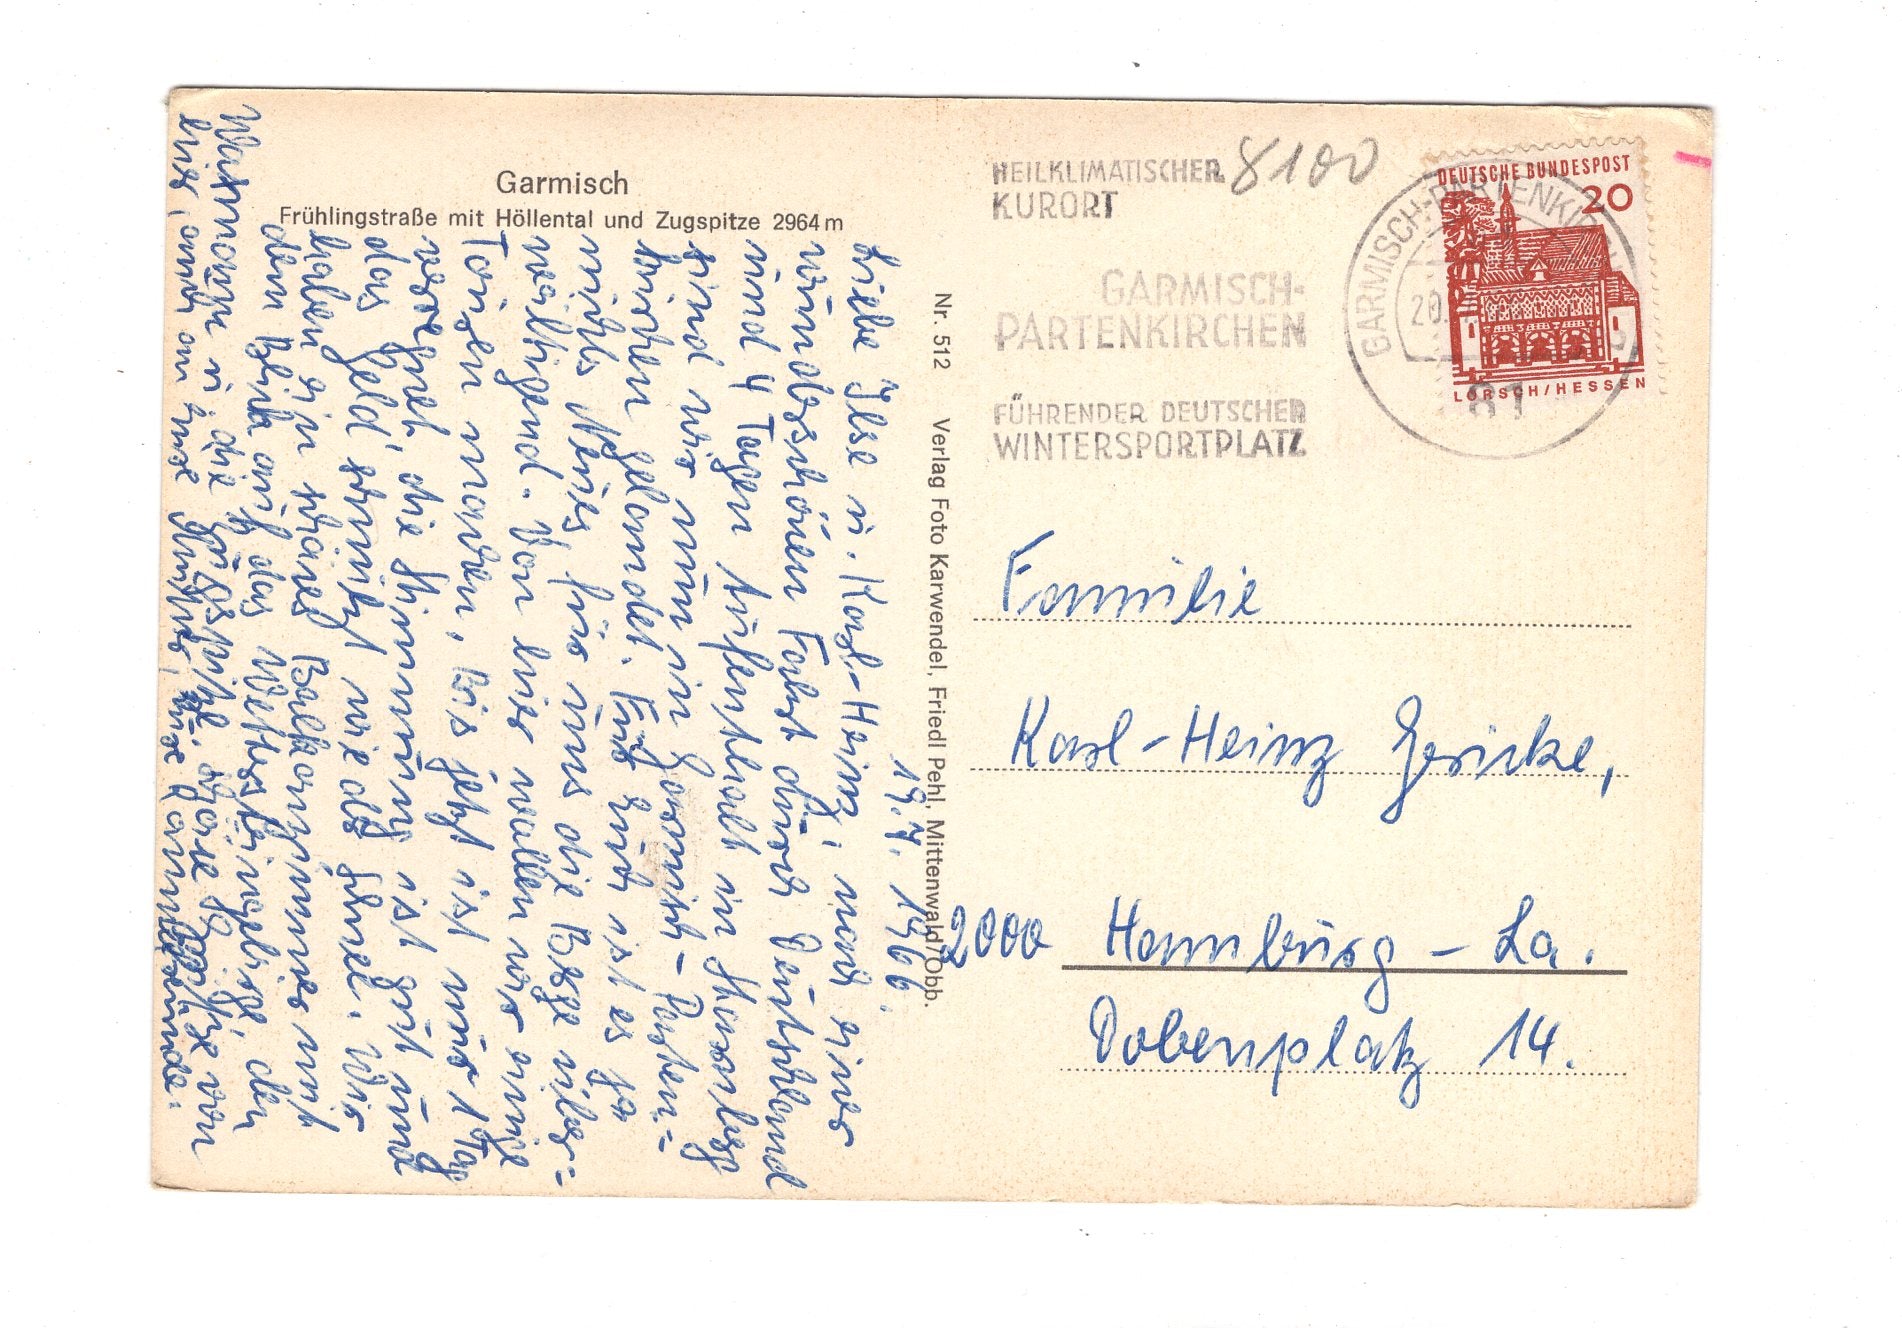 Garmisch
Frühlingstraße mit Höllental und Zugspitze 2964 m
HEILKLIMATISCHER
KURORT
GARMISCH-
PARTENKIRCHEN
FÜHRENDER DEUTSCHER
WINTERSPORTPLATZ
8100
DEUTSCHE BUNDESPOST
20
LORSCH/HESSEN
GARMISCH-PARTENKIRCHEN
20.
81
Nr. 512 Verlag Foto Karwendel, Friedl Pehl, Mittenwald/Obb.
19.7.1966.
Liebe Ilse u. Karl-Heinz, nach einer
wunderschönen Fahrt durch Deutschland
und 4 Tagen Aufenthalt in
sind wir nun in Garmisch-Parten=
kirchen gelandet. Für Euch ist es ja
nichts Neues für uns die Berge über=
wältigend. Von hier wollen wir einige
Touren machen, bis jetzt ist nur 1 Tag
verregnet, die Stimmung ist gut und
das Geld, schmilzt wie der Schnee. Wir
haben ein schönes Balkonzimmer mit
dem Blick auf das Wettersteingebirge, den
Waxenstein u. die Zugspitze. Herzl. Grüße von
hier, auch an Eure Kinder, Eure
Familie
Karl-Heinz Gericke,
2000 Hamburg - La.
Dobenplatz 14.